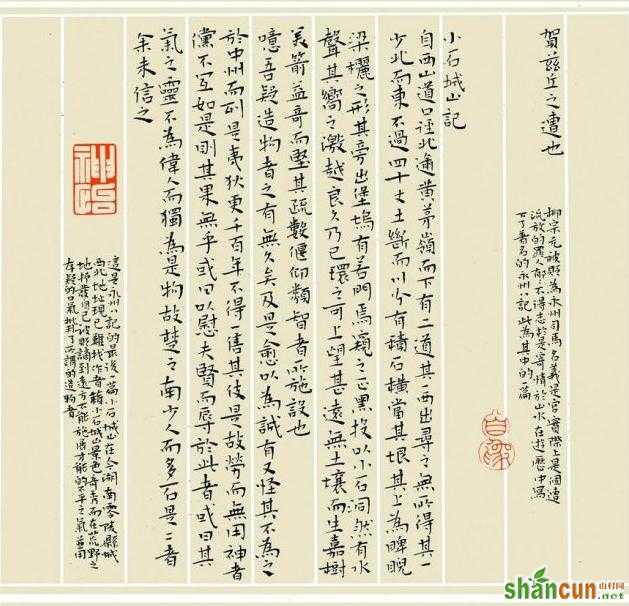 賀茲丘之遭也
柳宗元被貶為永州司馬名義是官實際上是個遭
流放的罪人郁々不得志於是寄情於山水在遊歷中寫
下了著名的永州八記此為其中的一篇
小石城山記
自西山道口徑北逾黃茅嶺而下有二道其一西出尋之無所得其一
少北而東不過四十丈土斷而川分有積石橫當其垠其上為睥睨
梁欐之形其旁出堡塢有若門焉窺之正黑投以小石洞然有水
聲其嚮之激越良久乃已環之可上望甚遠無土壤而生嘉樹
美箭益奇而堅其疏數偃仰類智者所施設也
噫吾疑造物者之有無久矣及是愈以為誠有又怪其不為之
於中州而列是夷狄更千百年不得一售其伎是故勞而無用神者
儻不宜如是則其果無乎或曰以慰夫賢而辱於此者或曰其
氣之靈不為偉人而獨為是物故楚之南少人而多石是二者
余未信之
這是永州八記的最後一篇小石城山在今湖南零陵縣城
西北地址現已難找作者藉小石城山景色奇秀而在荒野之
地抒發自己被貶謫到遠方不能施展才能的不平之氣並用
存疑的口氣批判了所謂的造物者
shancun 山村网
.net